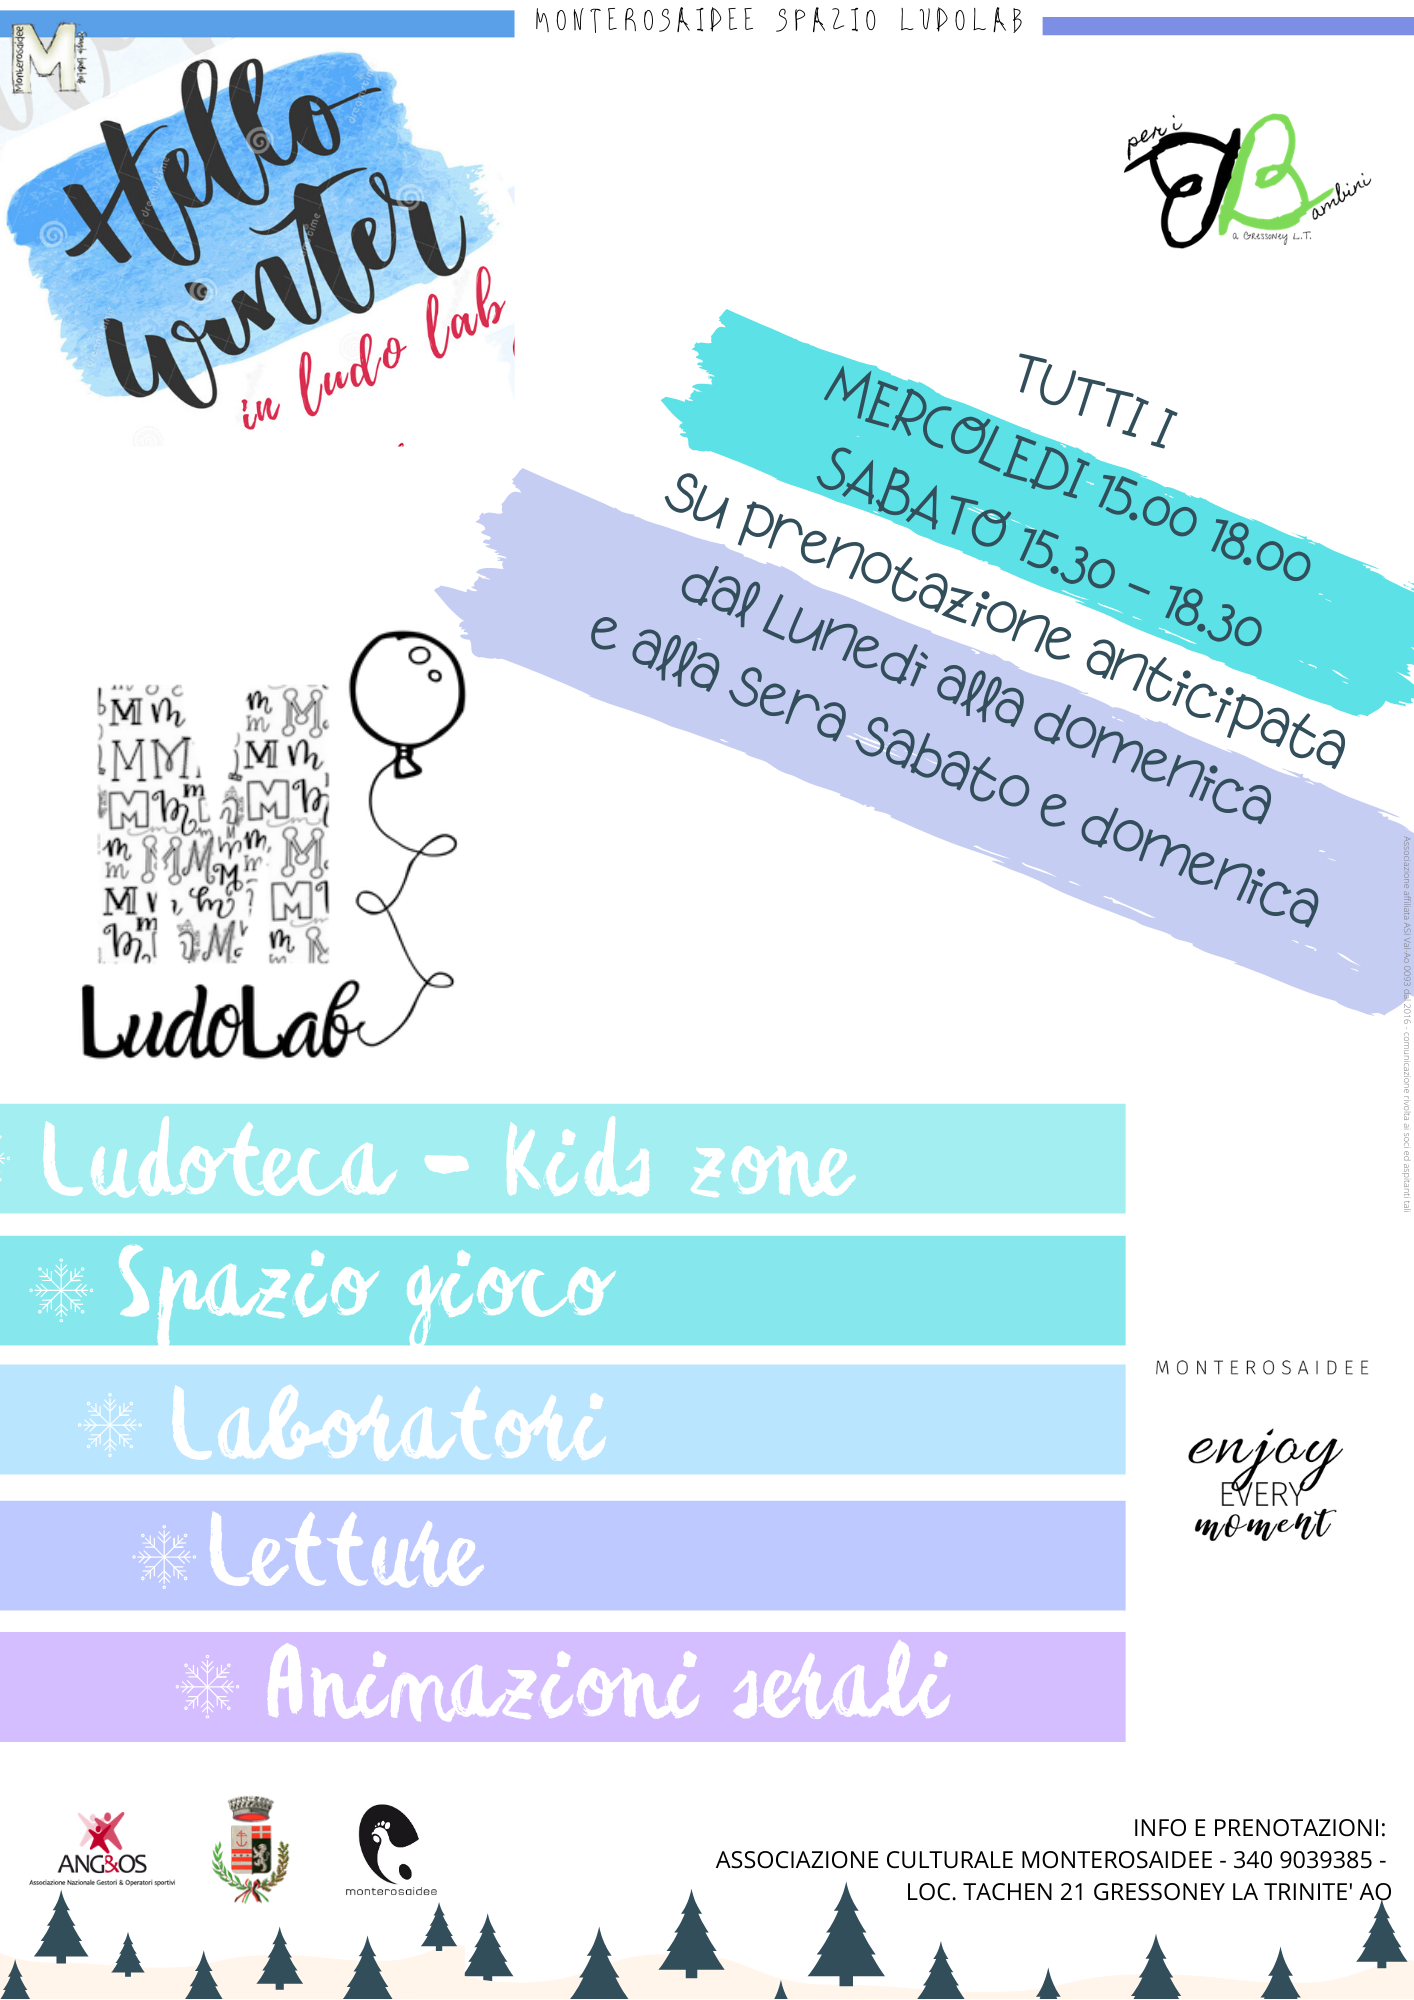 MONTEROSAIDEE SPAZIO LUDOLAB
M
Monterosaidee
Hello
winter
in ludo lab
per i
B
ambini
a Gressoney L.T.
TUTTI I
MERCOLEDI 15.00 18.00
SABATO 15.30 - 18.30
su prenotazione anticipata
dal Lunedi alla domenica
e alla sera sabato e domenica
LudoLab
Associazione affiliata ASI Val-Ao 0093 dal 2016 - comunicazione rivolta ai soci ed aspiranti tali
Ludoteca - Kids zone
Spazio gioco
Laboratori
Letture
Animazioni serali
MONTEROSAIDEE
enjoy
EVERY
moment
ANG&OS
Associazione Nazionale Gestori & Operatori sportivi
monterosaidee
INFO E PRENOTAZIONI:
ASSOCIAZIONE CULTURALE MONTEROSAIDEE - 340 9039385 -
LOC. TACHEN 21 GRESSONEY LA TRINITE' AO